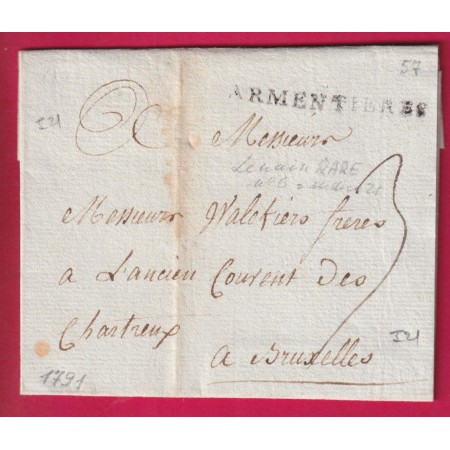 57
ARMENTIERES
IN
Messieurs
Lenain RARE
Messieurs Walckiers freres
a L'ancien Couvent des
Chartreux
a Bruxelles
IN
1791
3